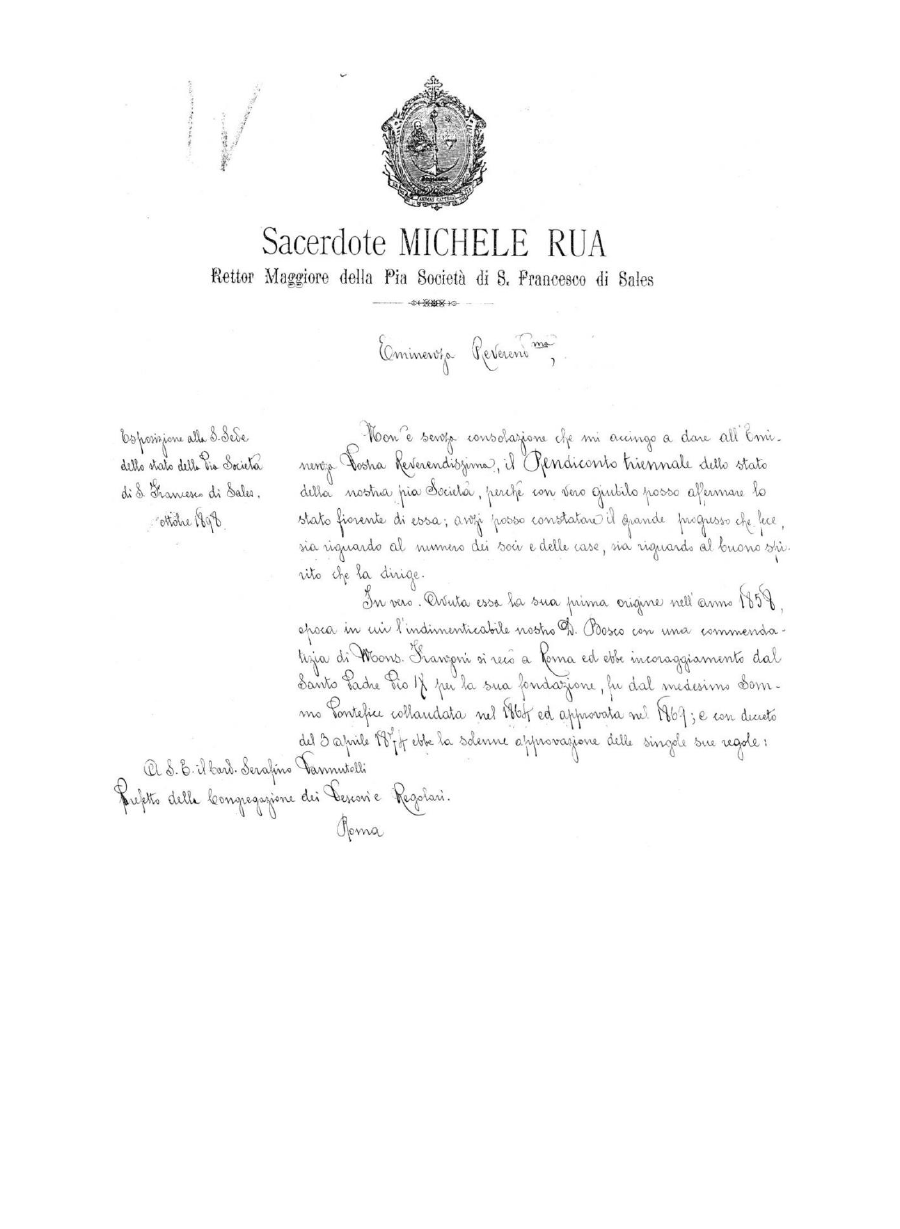 Sacerdote MICHELE RUA
Rettor Maggiore della Pia Società di S. Francesco di Sales
Eminenza Reverendma,
Esposizione alla S. Sede
dello stato della Pia Società
di S. Francesco di Sales.
ottobre 1898
Non è senza consolazione che mi accingo a dare all'Emi-
nenza Vostra Reverendissima, il Rendiconto triennale dello stato
della nostra pia Società, perchè con vero giubilo posso affermare lo
stato fiorente di essa; anzi posso constatare il grande progresso che fece,
sia riguardo al numero dei soci e delle case, sia riguardo al buono spi-
rito che la dirige.
In vero. Avuta essa la sua prima origine nell'anno 1858,
epoca in cui l'indimenticabile nostro D. Bosco con una commenda-
tizia di Mons. Franzoni si recò a Roma ed ebbe incoraggiamento dal
Santo Padre Pio IX per la sua fondazione, fu dal medesimo Som-
mo Pontefice collaudata nel 1864 ed approvata nel 1869; e con decreto
del 3 aprile 1874 ebbe la solenne approvazione delle singole sue regole:
A S. E. il Card. Serafino Vannutelli
Prefetto della Congregazione dei Vescovi e Regolari.
Roma